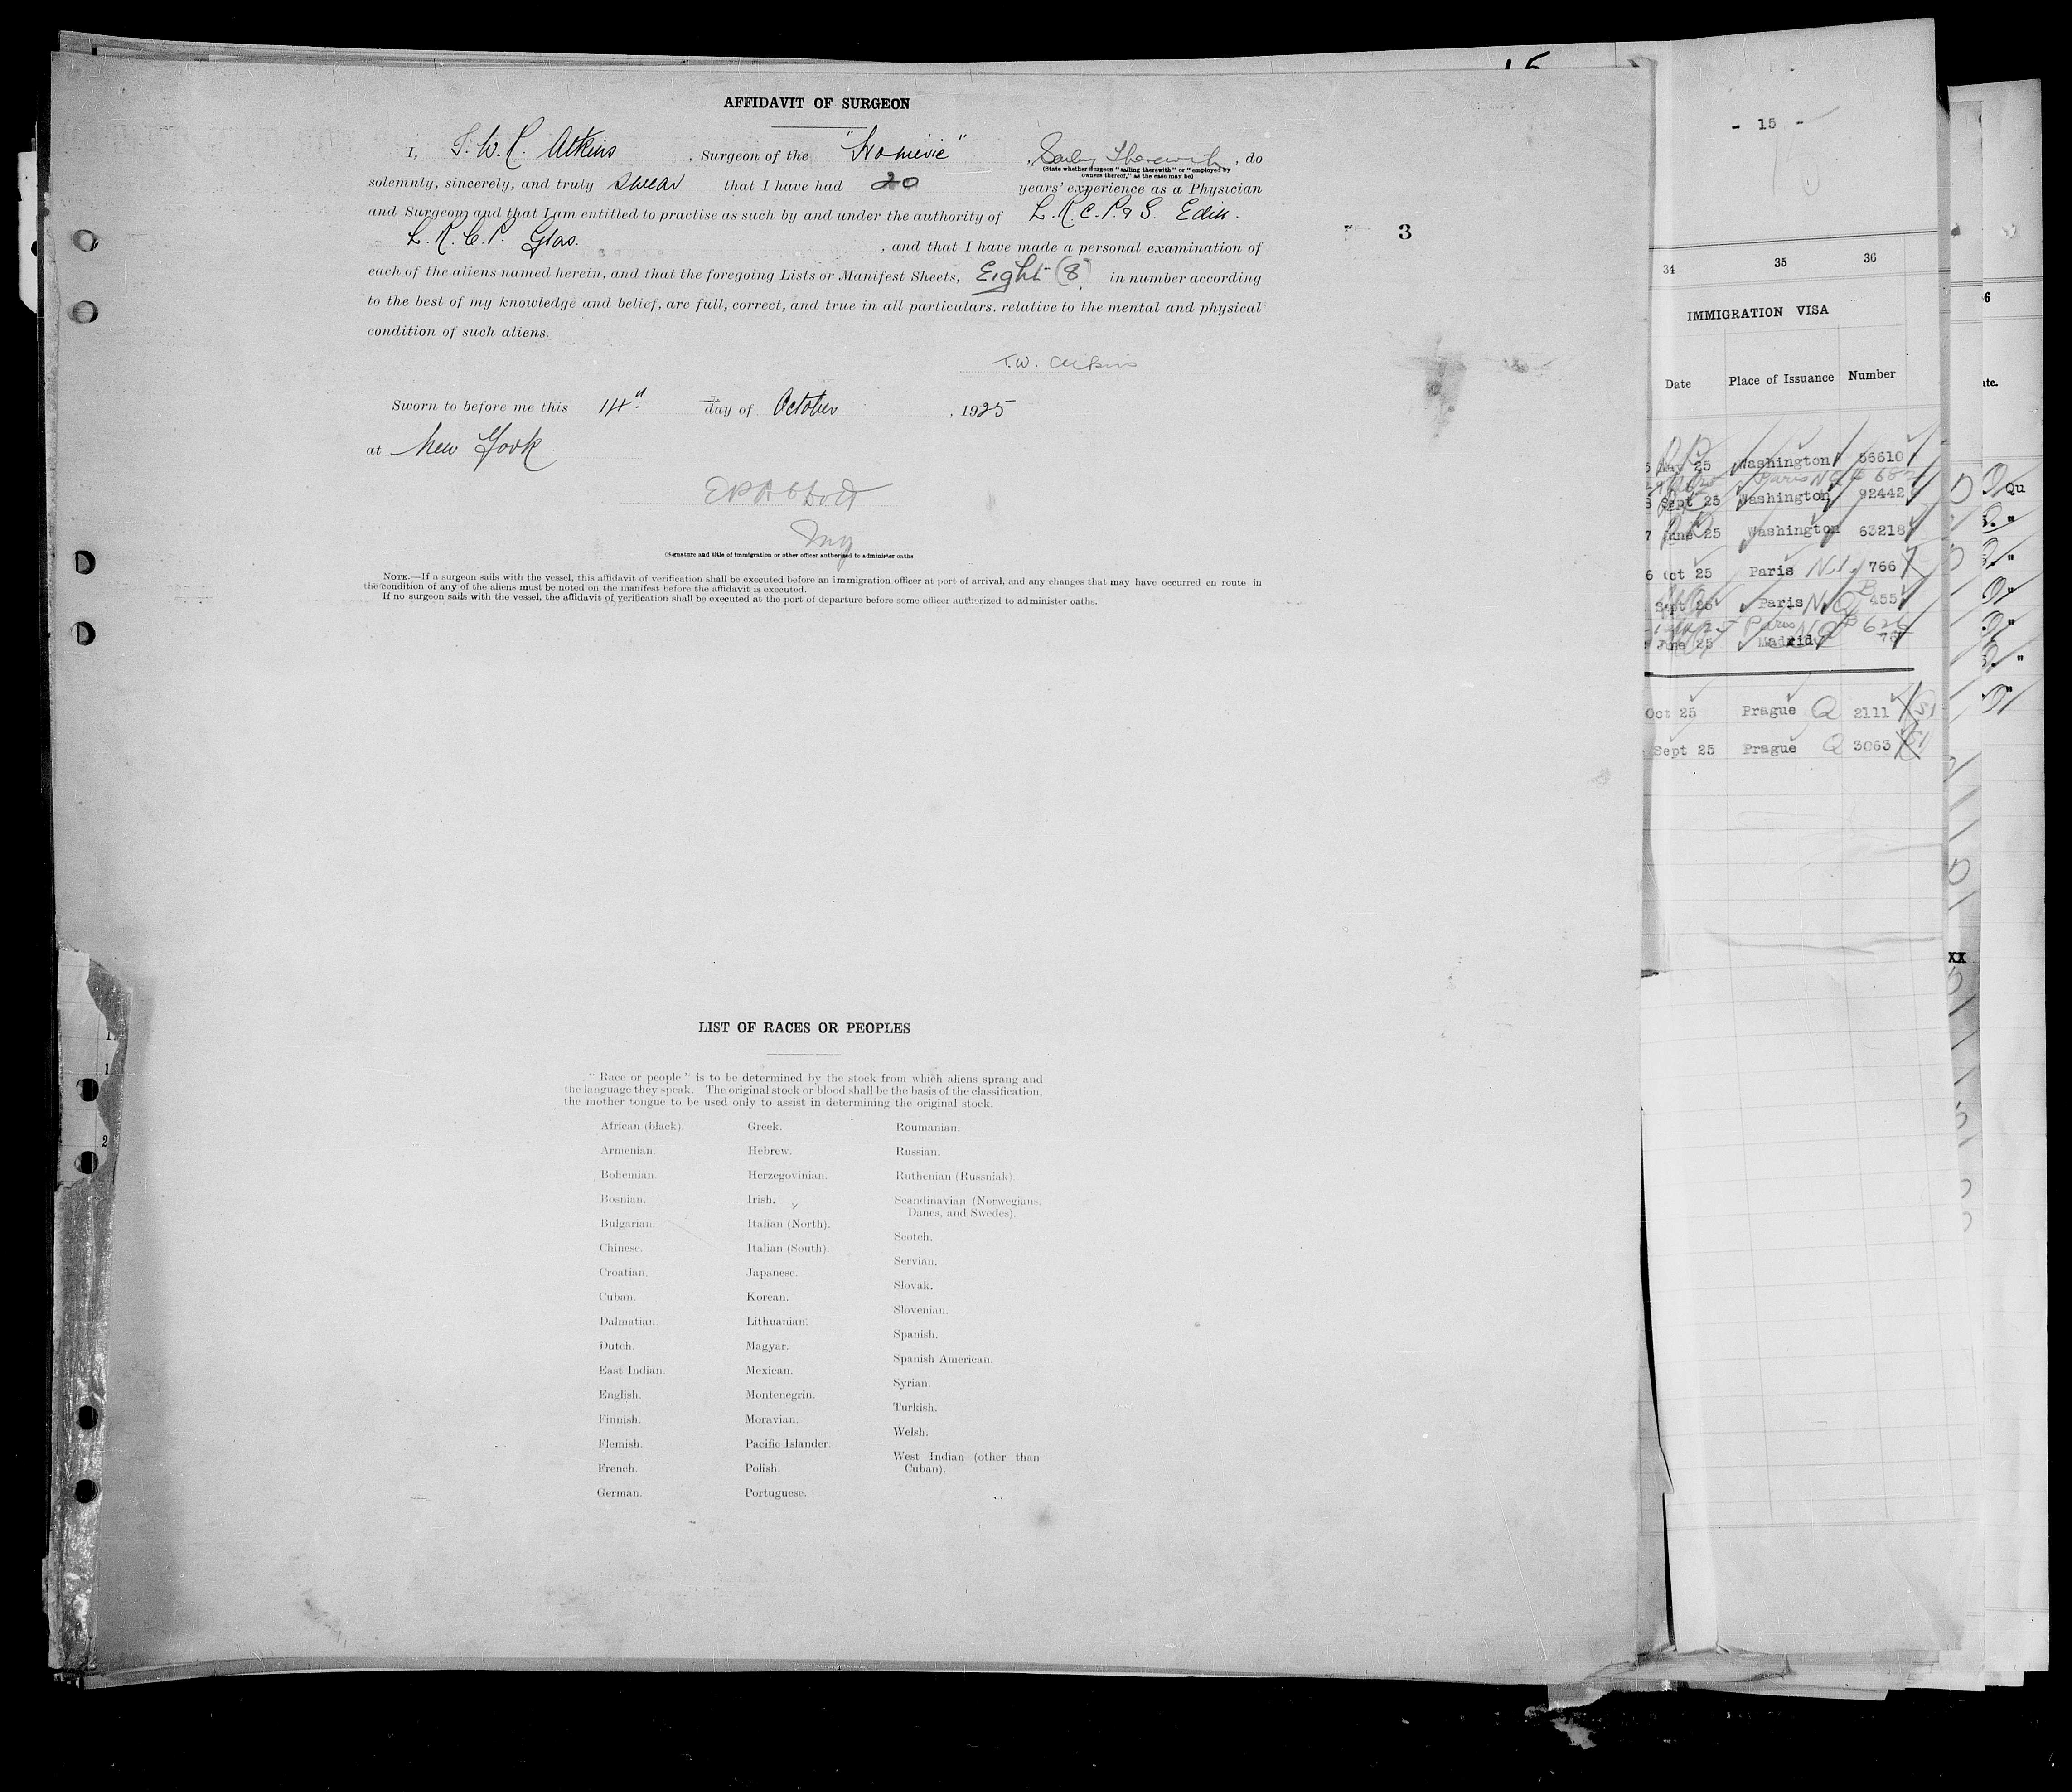 AFFIDAVIT OF SURGEON
I, T. W. R. Atkins , Surgeon of the "Homeric" , Sailing Therewith , do
(State whether Surgeon "sailing therewith" or "employed by
owners thereof," as the case may be)
solemnly, sincerely, and truly swear that I have had 20 years' experience as a Physician
and Surgeon and that I am entitled to practise as such by and under the authority of L.R.C.P. & S. Edin.
L.R.C.P. Glas. , and that I have made a personal examination of
each of the aliens named herein, and that the foregoing Lists or Manifest Sheets, Eight (8) in number according
to the best of my knowledge and belief, are full, correct, and true in all particulars, relative to the mental and physical
condition of such aliens.
T.W. Atkins
Sworn to before me this 14th day of October , 1925
at New York
(Signature and title of immigration or other officer authorized to administer oaths
NOTE.—If a surgeon sails with the vessel, this affidavit of verification shall be executed before an immigration officer at port of arrival, and any changes that may have occurred en route in
the condition of any of the aliens must be noted on the manifest before the affidavit is executed.
If no surgeon sails with the vessel, the affidavit of verification shall be executed at the port of departure before some officer authorized to administer oaths.
3
LIST OF RACES OR PEOPLES
"Race or people" is to be determined by the stock from which aliens sprang and
the language they speak. The original stock or blood shall be the basis of the classification,
the mother tongue to be used only to assist in determining the original stock.
African (black).
Armenian.
Bohemian.
Bosnian.
Bulgarian.
Chinese.
Croatian.
Cuban.
Dalmatian.
Dutch.
East Indian.
English.
Finnish.
Flemish.
French.
German.
Greek.
Hebrew.
Herzegovinian.
Irish.
Italian (North).
Italian (South).
Japanese.
Korean.
Lithuanian.
Magyar.
Mexican.
Montenegrin.
Moravian.
Pacific Islander.
Polish.
Portuguese.
Roumanian.
Russian.
Ruthenian (Russniak).
Scandinavian (Norwegians,
Danes, and Swedes).
Scotch.
Servian.
Slovak.
Slovenian.
Spanish.
Spanish American.
Syrian.
Turkish.
Welsh.
West Indian (other than
Cuban).
- 15 -
34 35 36
IMMIGRATION VISA
Date Place of Issuance Number
May 25 Washington 56610
Paris
Sept 25 Washington 92442
7 June 25 Washington 63218
6 Oct 25 Paris 766
Sept 25 Paris N.Q. 455
Paris NQ
June 25 Madrid 76
Oct 25 Prague Q 2111
Sept 25 Prague Q 3063
Qu
XX